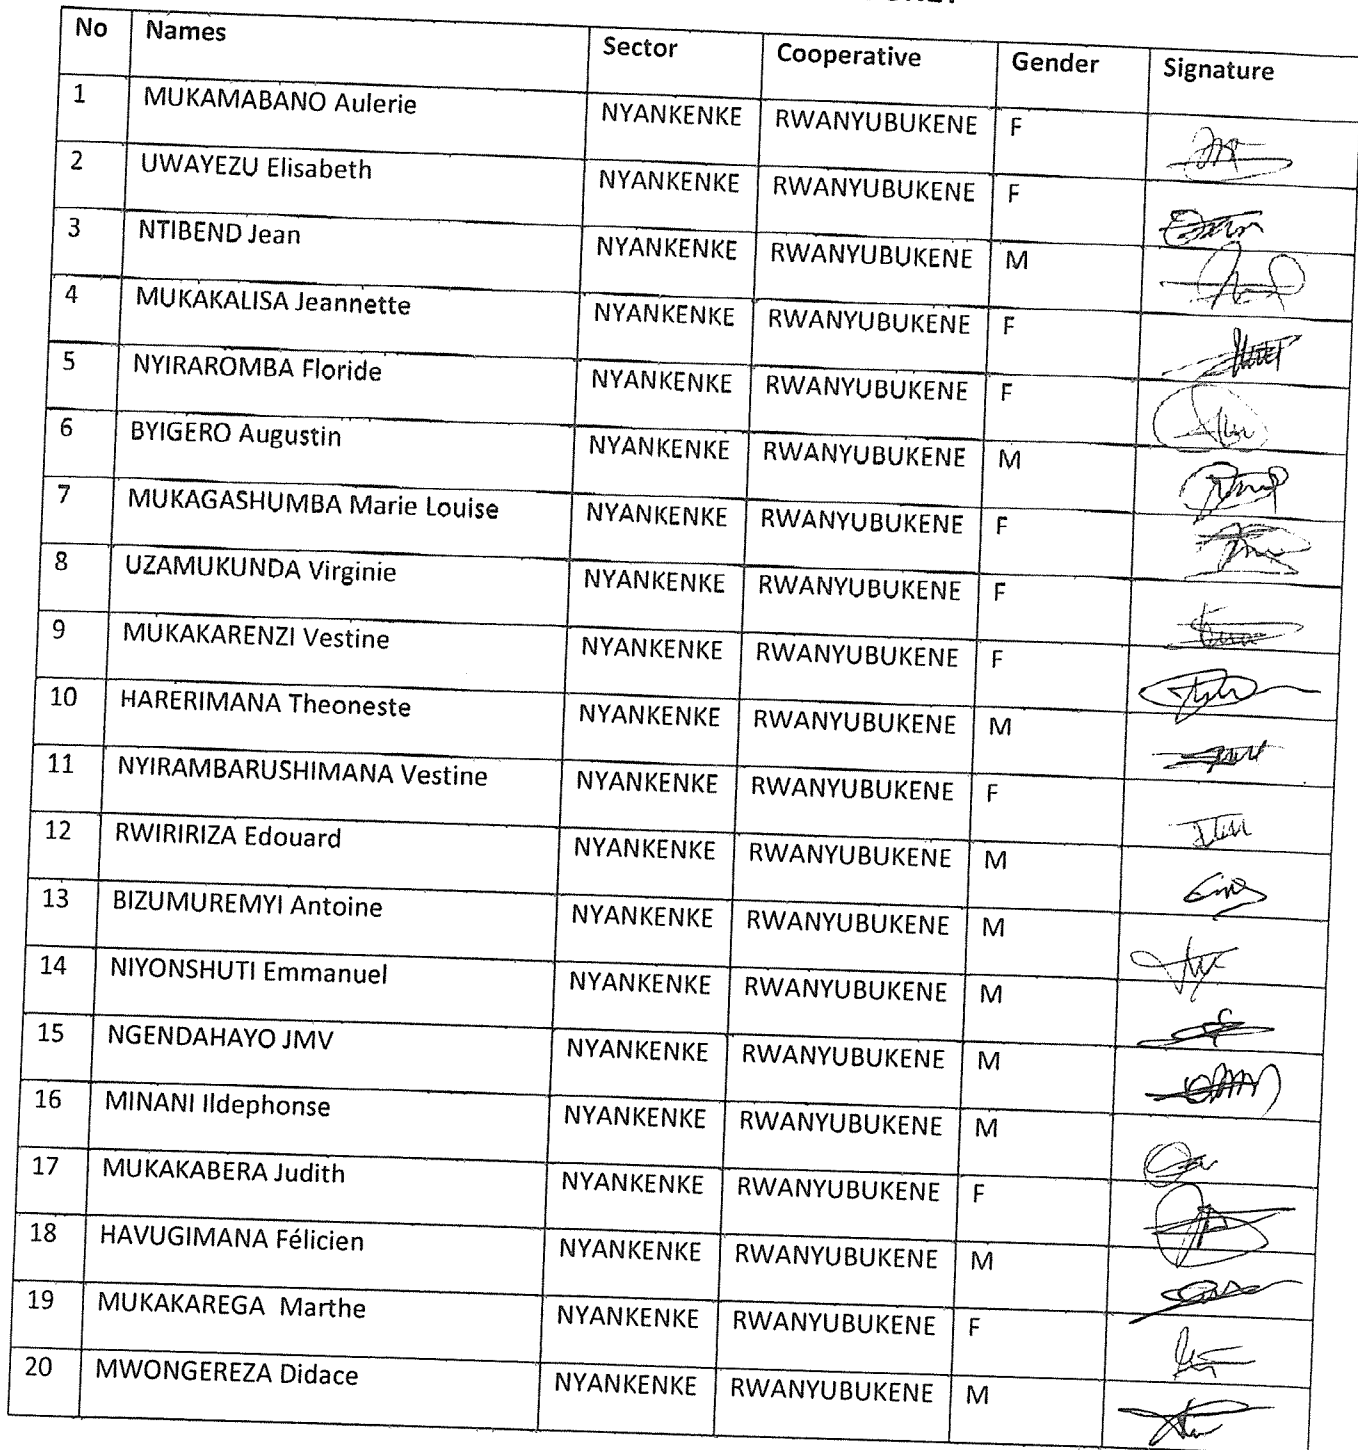 No Names Sector Cooperative Gender Signature
1 MUKAMABANO Aulerie NYANKENKE RWANYUBUKENE F
2 UWAYEZU Elisabeth NYANKENKE RWANYUBUKENE F
3 NTIBEND Jean NYANKENKE RWANYUBUKENE M
4 MUKAKALISA Jeannette NYANKENKE RWANYUBUKENE F
5 NYIRAROMBA Floride NYANKENKE RWANYUBUKENE F
6 BYIGERO Augustin NYANKENKE RWANYUBUKENE M
7 MUKAGASHUMBA Marie Louise NYANKENKE RWANYUBUKENE F
8 UZAMUKUNDA Virginie NYANKENKE RWANYUBUKENE F
9 MUKAKARENZI Vestine NYANKENKE RWANYUBUKENE F
10 HARERIMANA Theoneste NYANKENKE RWANYUBUKENE M
11 NYIRAMBARUSHIMANA Vestine NYANKENKE RWANYUBUKENE F
12 RWIRIRIZA Edouard NYANKENKE RWANYUBUKENE M
13 BIZUMUREMYI Antoine NYANKENKE RWANYUBUKENE M
14 NIYONSHUTI Emmanuel NYANKENKE RWANYUBUKENE M
15 NGENDAHAYO JMV NYANKENKE RWANYUBUKENE M
16 MINANI Ildephonse NYANKENKE RWANYUBUKENE M
17 MUKAKABERA Judith NYANKENKE RWANYUBUKENE F
18 HAVUGIMANA Félicien NYANKENKE RWANYUBUKENE M
19 MUKAKAREGA Marthe NYANKENKE RWANYUBUKENE F
20 MWONGEREZA Didace NYANKENKE RWANYUBUKENE M